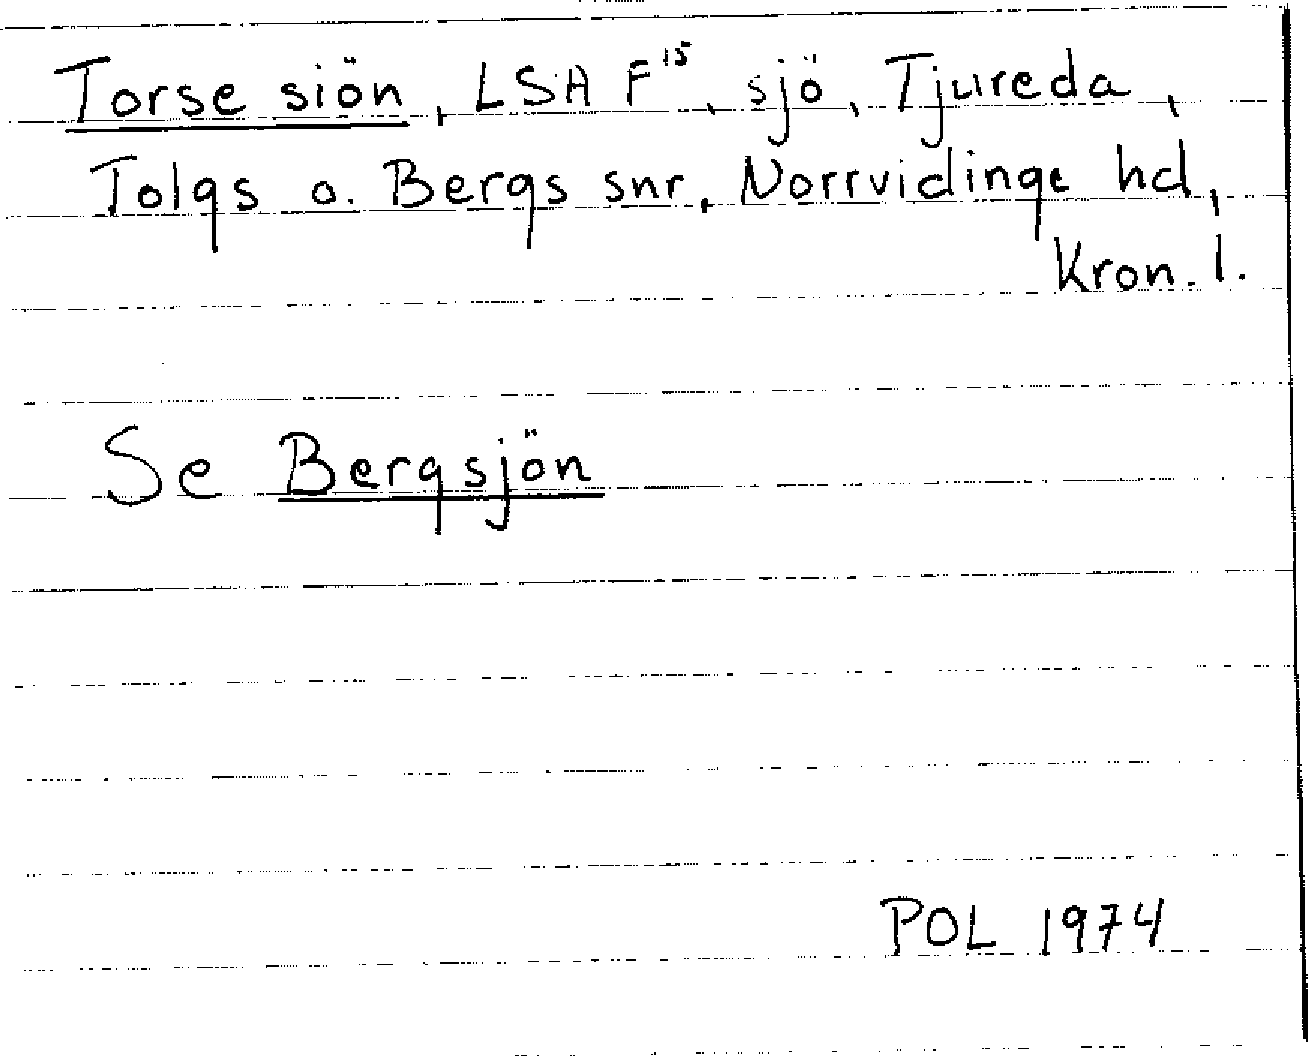 Torse siön, LSA F¹⁵, sjö, Tjureda,
Tolgs o. Bergs snr, Norrvidinge hd,
Kron. l.
Se Bergsjön
POL 1974